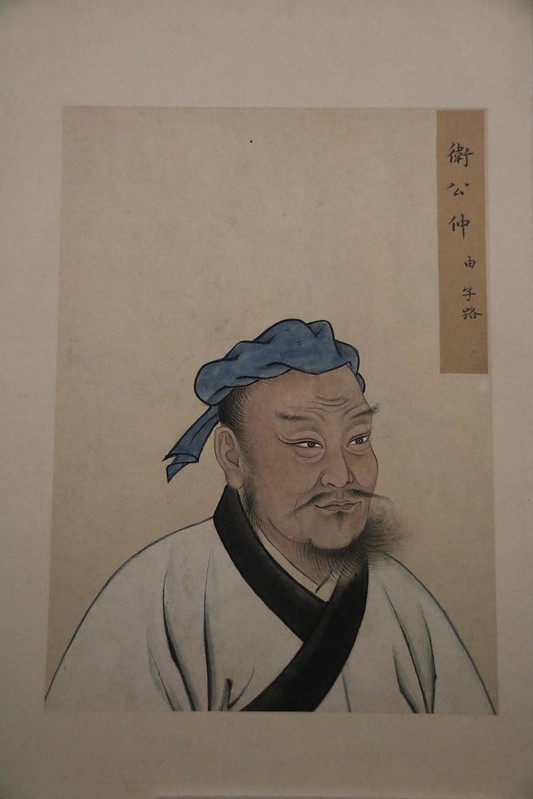 衛公仲由子路